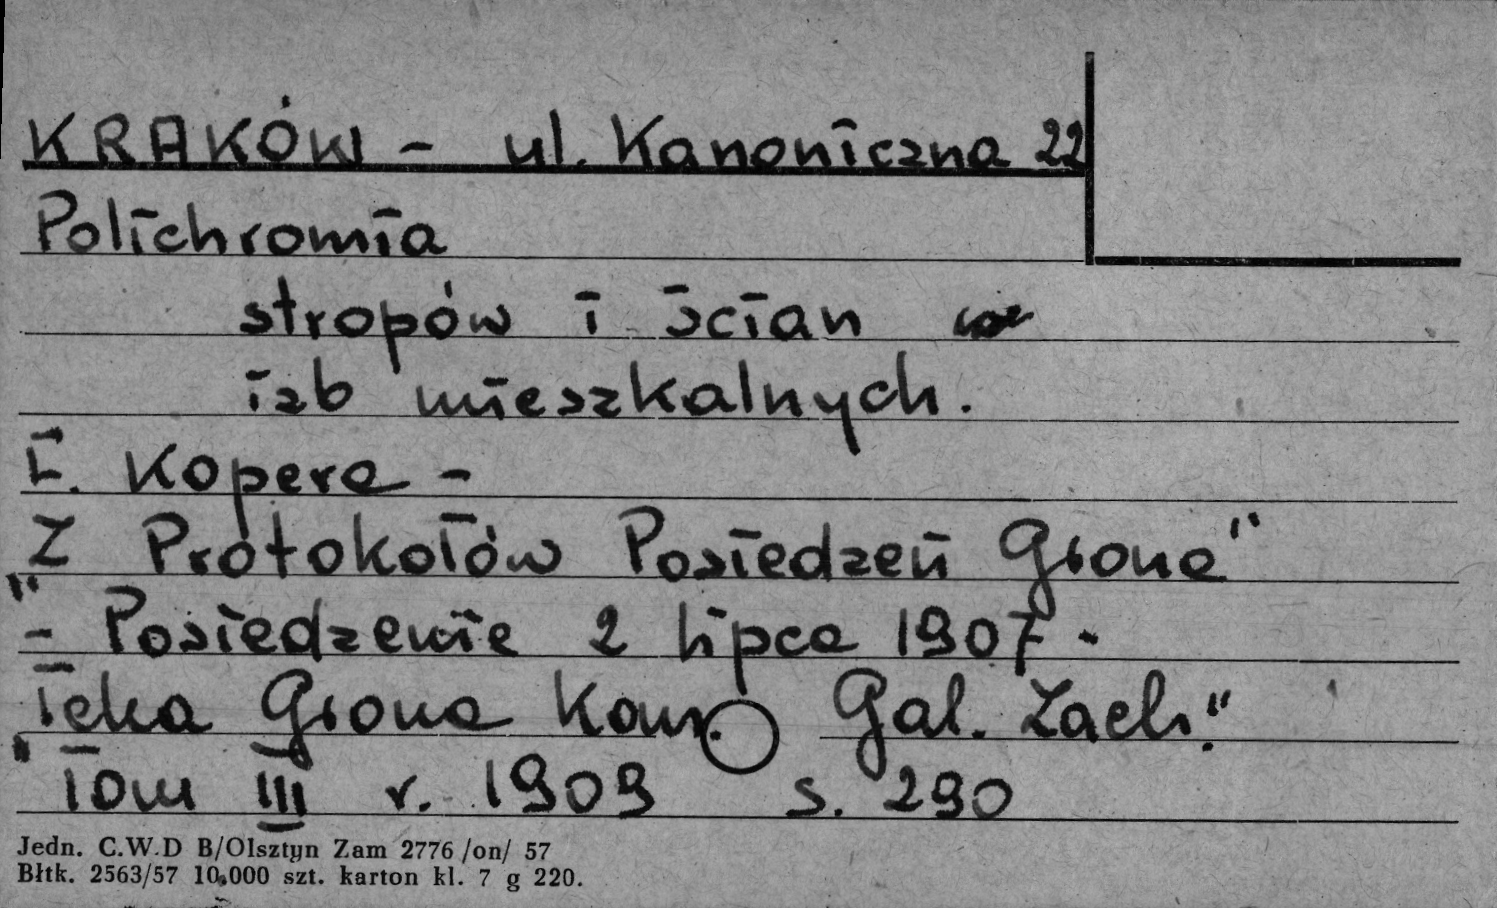 KRAKÓW - ul. Kanoniczna 22
Polichromia
stropów i ścian
izb mieszkalnych.
F. Kopera -
Z Protokołów Posiedzeń Grona"
"- Posiedzenie 2 lipca 1907.
Teka Grona Kons. Gal. Zach."
"Tom III r. 1909 s. 290
Jedn. C.W.D B/Olsztyn Zam 2776 /on/ 57
Błtk. 2563/57 10.000 szt. karton kl. 7 g 220.